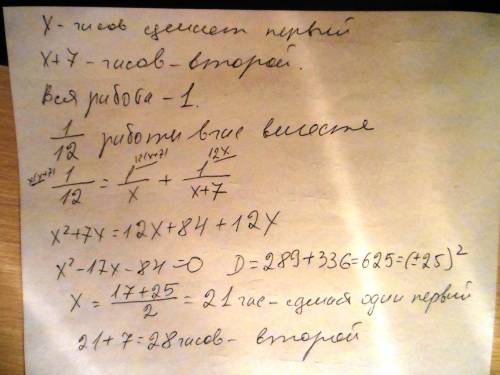 х - часов сделает первый
х+7 - часов - второй.
Вся работа - 1.
1/12 работы в час вместе
х(х+7) 1/12 = 12(х+7) 1/х + 12х 1/(х+7)
х²+7х=12х+84+12х
х²-17х-84=0 D=289+336=625=(±25)²
х = (17+25)/2 = 21 час - сделает один первый
21+7=28 часов - второй